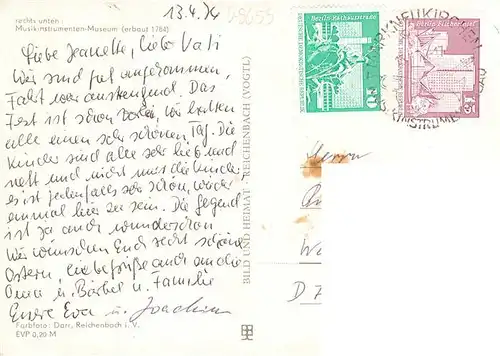 rechts unten:
Musikinstrumenten-Museum (erbaut 1784)
13.4.74
Liebe Jeanette, lieber Vati
Wir sind gut angekommen,
Fahrt war anstrengend. Das
Fest ist schon vorbei, wir hatten
alle einen sehr schönen Tag. Die
Kinder sind alle sehr lieb und
nett und nicht nur die Kinder
es ist jedenfalls sehr schön, wieder
einmal hier zu sein. Die Gegend
ist ja auch wunderschön
Wir wünschen Euch recht schöne
Ostern, liebe Grüße auch an die
Oma u. Bärbel u. Familie
Eure Eva u. Joachim
Farbfoto: Darr, Reichenbach i. V.
EVP 0,20 M
BILD UND HEIMAT REICHENBACH (VOGTL)
Berlin, Rathausstraße
10
DEUTSCHE DEMOKRATISCHE REPUBLIK
Berlin, Fischerinsel
MARKNEUKIRCHEN
Herrn
D 7